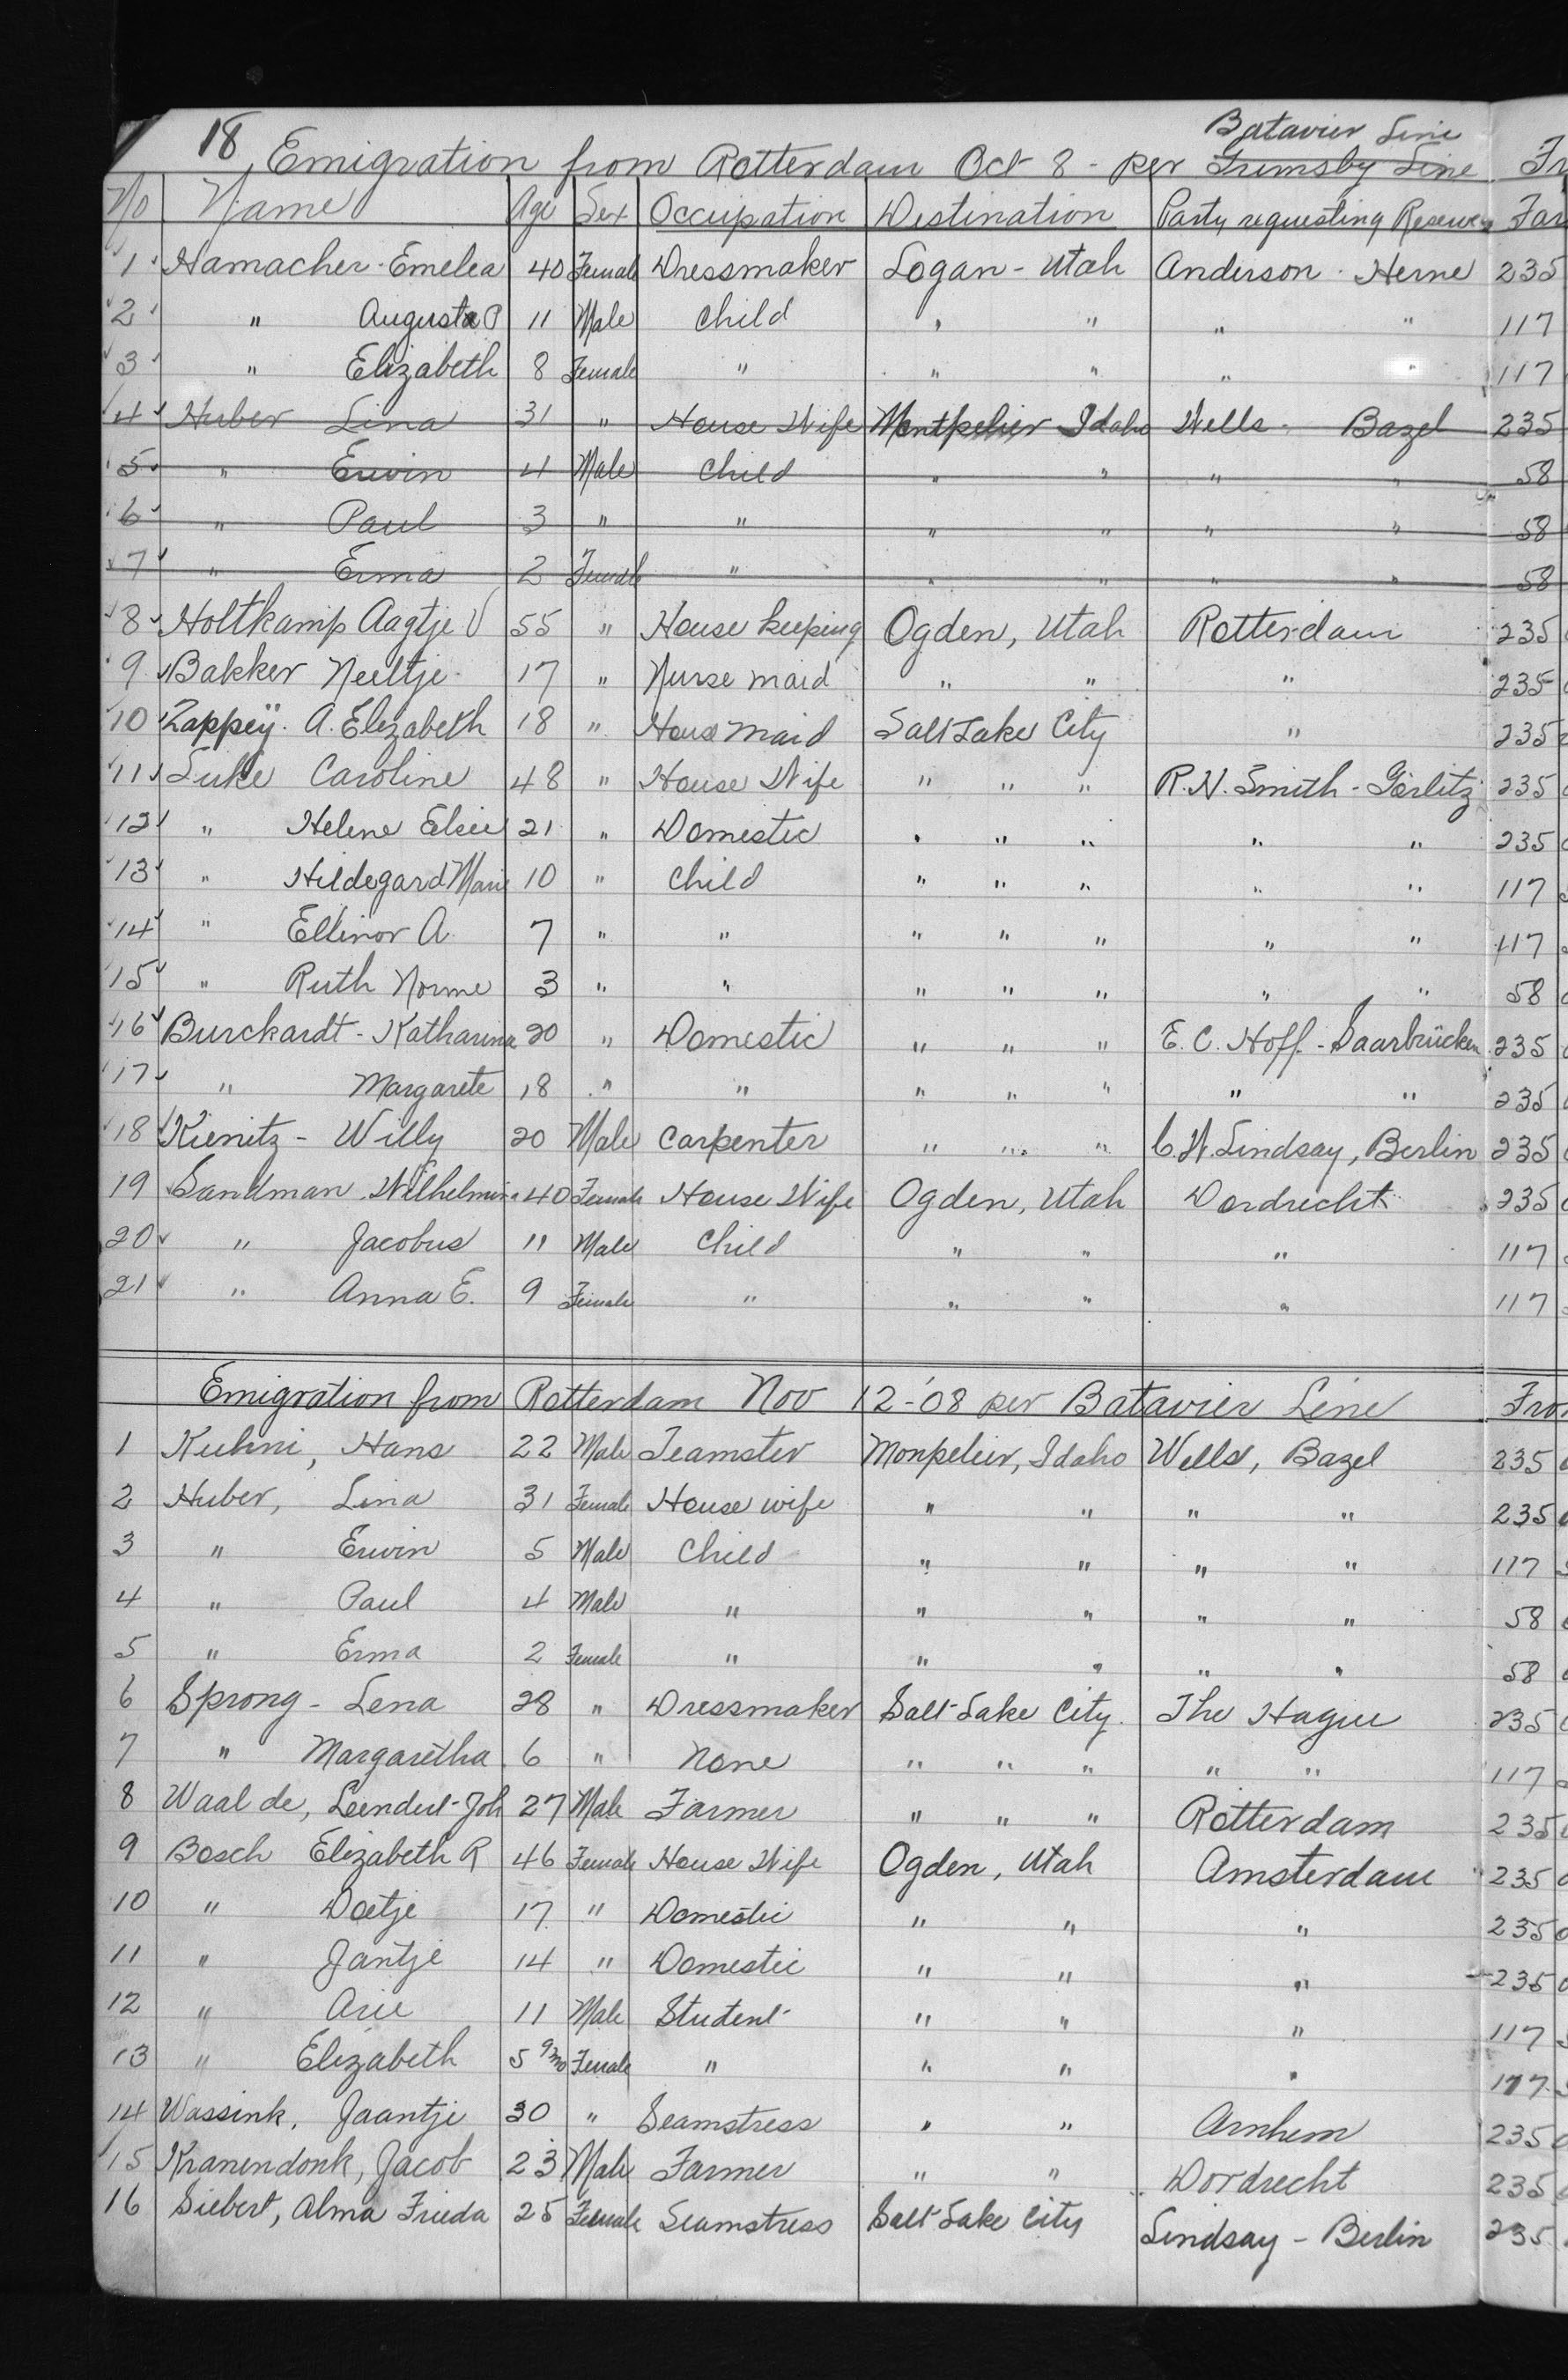 18 Emigration from Rotterdam Oct 8 - per Grimsby Line Batavier Line
No Name Age Sex Occupation Destination Party requesting Reserve Far
1 Hamacher - Emelea 40 Female Dressmaker Logan - Utah Anderson - Herne 235
2 " Augusta P 11 Male Child " " " " 117
3 " Elizabeth 8 Female " " " " " 117
4 Huber Lina 31 " House Wife Montpelier Idaho Wells - Bazel 235
5 " Erwin 4 Male Child " " " " 58
6 " Paul 3 " " " " " " 58
7 " Erma 2 Female " " " " " 58
8 Holtkamp Aagtje V 55 " House keeping Ogden, Utah Rotterdam 235
9 Bakker Neeltje 17 " Nurse maid " " " 235
10 Zappeÿ. A. Elizabeth 18 " House maid Salt Lake City " 235
11 Luke Caroline 48 " House Wife " " " R.N. Smith - Görlitz 235
12 " Helene Elsie 21 " Domestic " " " " " 235
13 " Hildegard Marie 10 " Child " " " " " 117
14 " Ellinor A. 7 " " " " " " " 117
15 " Ruth Norme 3 " " " " " " " 58
16 Burckardt - Katharina 20 " Domestic " " " E. C. Hoff - Saarbrücken 235
17 " Margarete 18 " " " " " " " 235
18 Kienitz - Willy 20 Male Carpenter " " " C.W. Lindsay, Berlin 235
19 Sandman Wilhelmina 40 Female House Wife Ogden, Utah Dordrecht 235
20 " Jacobus 11 Male Child " " " 117
21 " Anna E. 9 Female " " " " 117
Emigration from Rotterdam Nov 12-'08 per Batavier Line
1 Kuhni, Hans 22 Male Teamster Monpelier, Idaho Wells, Bazel 235
2 Huber, Lina 31 Female House wife " " " " 235
3 " Erwin 5 Male Child " " " " 117
4 " Paul 4 Male " " " " " 58
5 " Erma 2 Female " " " " " 58
6 Sprong - Lena 28 " Dressmaker Salt Lake City. The Hague 235
7 " Margaretha 6 " None " " " " " 117
8 Waal de, Leendert-Joh 27 Male Farmer " " " Rotterdam 235
9 Bosch Elizabeth R 46 Female House Wife Ogden, Utah Amsterdam 235
10 " Doetje 17 " Domestic " " " 235
11 " Jantje 14 " Domestic " " " 235
12 " Arie 11 Male Student " " " 117
13 " Elizabeth 5 9/mo Female " " " " 117
14 Wassink, Jaantje 30 " Seamstress " " Arnhem 235
15 Kranendonk, Jacob 23 Male Farmer " " Dordrecht 235
16 Siebert, Alma Frieda 25 Female Seamstress Salt Lake City Lindsay - Berlin 235